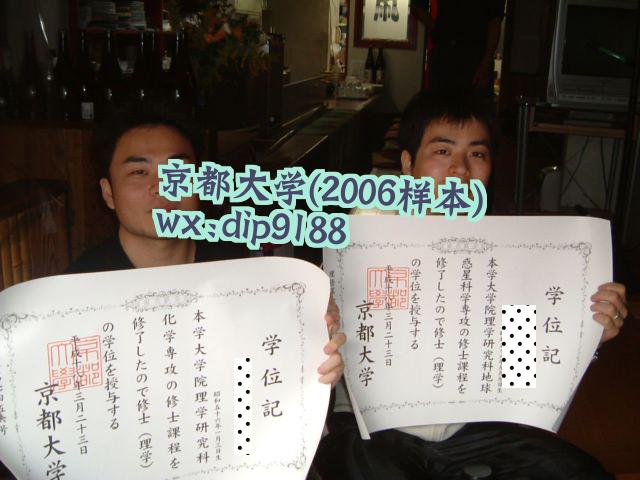 京都大学(2006样本)
wx:dip9188
学位記
昭和五十六年一月三日生
本学大学院理学研究科
化学専攻の修士課程を
修了したので修士(理学)
の学位を授与する
年三月二十三日
京都大学
学位記
本学大学院理学研究科地球
惑星科学専攻の修士課程を
修了したので修士(理学)
の学位を授与する
年三月二十三日
京都大学